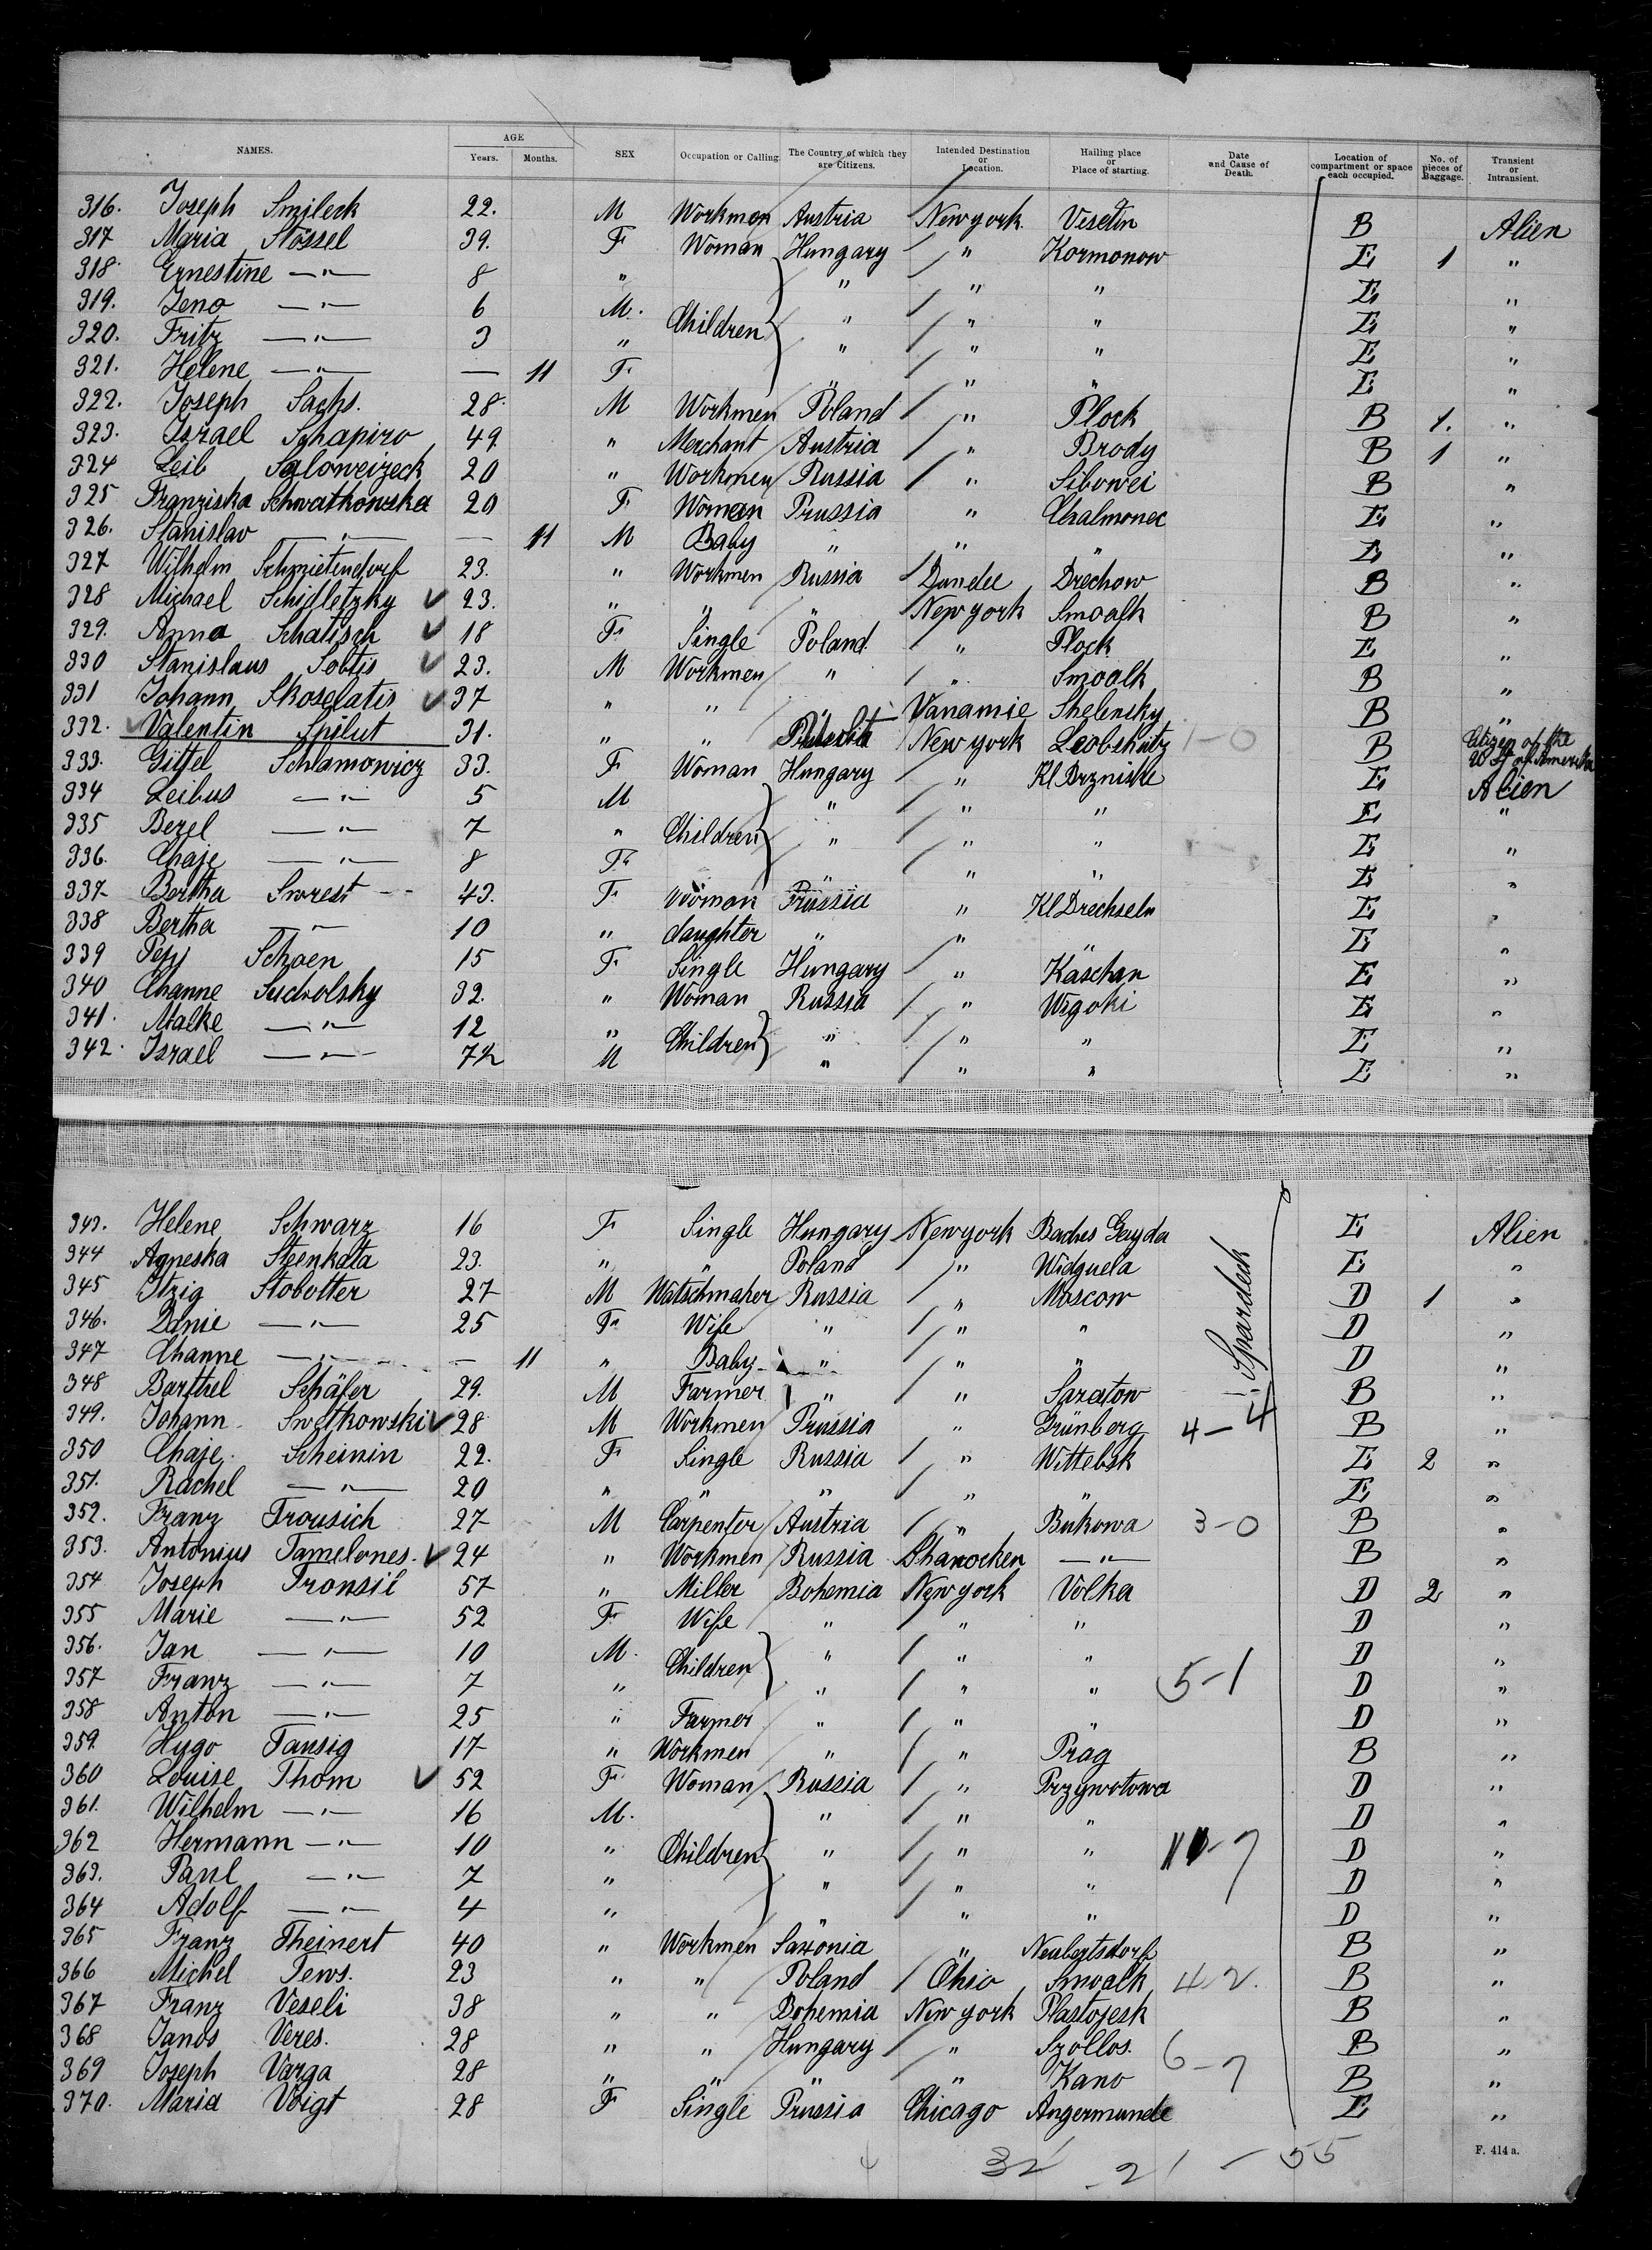 NAMES. AGE Years. Months. SEX Occupation or Calling. The Country of which they are Citizens. Intended Destination or Location. Hailing place or Place of starting. Date and Cause of Death. Location of compartment or space each occupied. No. of pieces of Baggage. Transient or Intransient.
316. Joseph Smileck 22. M Workmen Austria New york. Visetin B Alien
317 Maria Stössel 39. F Woman Hungary " Kormonow E 1 "
318. Ernestine —"— 8 " " " " E "
319. Jeno —"— 6 M. Children " " " E "
320. Fritz —"— 3 " " " " E "
321. Helene —"— — 11 F " " " E "
322. Joseph Sachs. 28. M Workmen Poland " Plock B 1. "
323. Israel Schapiro 49 " Merchant Austria " Brody B 1 "
324 Leib Saloweizeck 20 " Workmen Russia " Sibowei B "
325 Franziska Schwatkowska 20 F Woman Prussia " Chalmonec E "
326. Stanislav —"— — 11 M Baby " " " E "
327 Wilhelm Schmietendorf 23. " Workmen Russia Dundee Drechow B "
328 Michael Schidletzky 23. " " " New york Smoalk B "
329. Anna Schatisch 18 F Single Poland " Plock E "
330 Stanislaus Sobtis 23. M Workmen " " Smoalk B "
331 Johann Skoselatis 37 " " " Vanamie Shelensky B "
332. Valentin Spilut 31. " " New york Leobschütz 1-0 B Citizen of the U St of Amerika
333. Gittel Schlamowicz 33. F Woman Hungary " Kl Brzniske E Alien
334 Leibus —"— 5 M " " " E "
335 Berel —"— 7 " Children " " " E "
336. Chaje —"— 8 F " " " E "
337 Bertha Sworest 43. F Woman Prussia " Kl Drechseln E "
338 Bertha —"— 10 " daughter " " E "
339 Pepi Schoen 15 F Single Hungary " Kaschan E "
340 Channe Sucholsky 32. " Woman Russia " Wigoki E "
341. Malke —"— 12 " Children " " " E "
342. Israel —"— 7½ M " " " E "
343. Helene Schwarz 16 F Single Hungary New york Badres Gayda E Alien
344 Agneska Stenkata 23. " " Poland " Widguela E "
345 Itzig Stobotter 27 M Watschmaker Russia " Moscow D 1 "
346. Danie —"— 25 F Wife " " " D "
347 Channe —"— — 11 " Baby " " " D "
348 Barthel Schäfer 29. M Farmer " " Saratow B "
349. Johann Swetkowski 28 M Workmen Prussia " Grünberg 4-4 B "
350 Chaje Scheinin 22. F Single Russia " Wittebsk E 2 "
351. Rachel —"— 20 " " " " " E "
352. Franz Trousich 27 M Carpenter Austria " Bukowa 3-0 B "
353. Antonius Tamelones. 24 " Workmen Russia Shanocken —"— B "
354 Joseph Tronsil 57 " Miller Bohemia New york Volka D 2 "
355 Marie —"— 52 F Wife " " " D "
356. Jan —"— 10 M. Children " " " D "
357 Franz —"— 7 " " " " 5-1 D "
358 Anton —"— 25 " Farmer " " " D "
359. Hugo Tausig 17 " Workmen " " Prag B "
360 Louise Thom 52 F Woman Russia " Przywotowa D "
361. Wilhelm —"— 16 M. " " " D "
362 Hermann —"— 10 " Children " " " D "
363. Paul —"— 7 " " " " D "
364 Adolf —"— 4 " " " " D "
365 Franz Theinert 40 " Workmen Saxonia " Neubertsdorf B "
366 Michel Tews. 23 " " Poland Ohio Smoalk 4-2. B "
367 Franz Veseli 38 " " Bohemia New york Plastojesk B "
368 Janos Veres. 28 " " Hungary " Szollos. B "
369 Joseph Varga 28 " " " " Kano 6-7 B "
370. Maria Voigt 28 F Single Prussia Chicago Angermunde E "
Spardeck
32 21 - 55
F. 414 a.